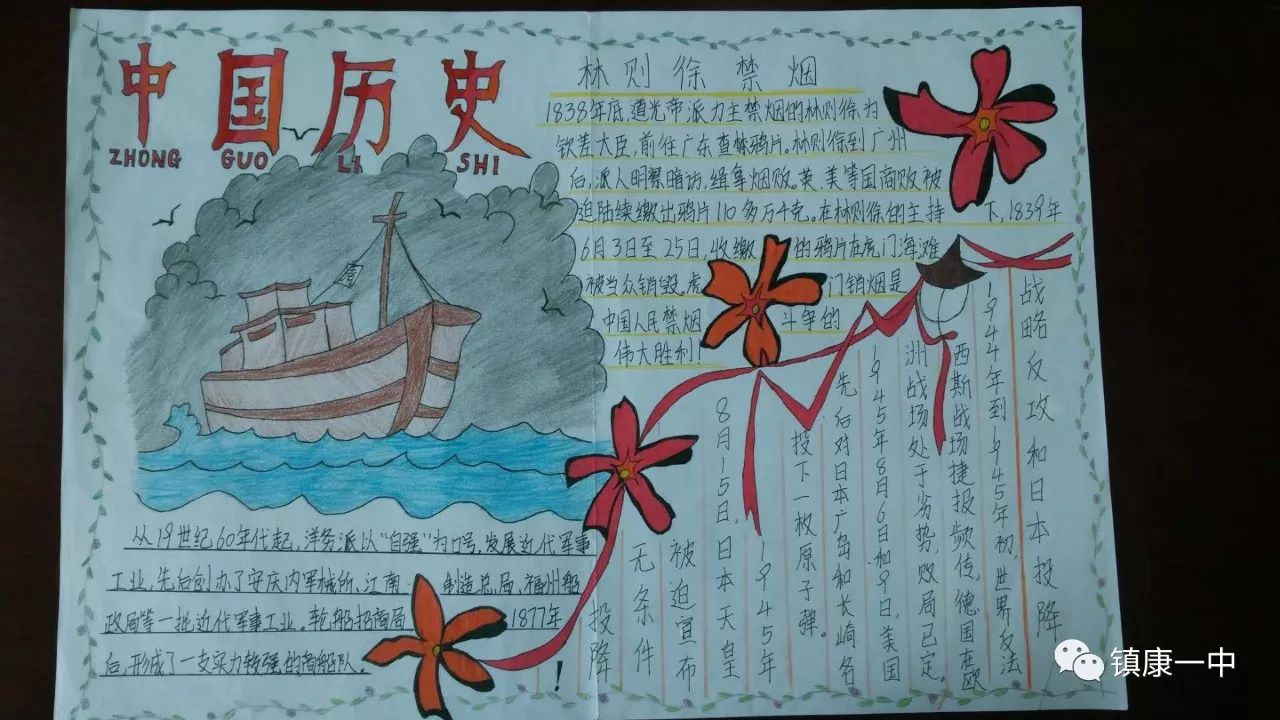 中国历史
ZHONG GUO LI SHI
林则徐禁烟
1838年底,道光帝派力主禁烟的林则徐为
钦差大臣,前往广东查禁鸦片。林则徐到广州
后,派人明察暗访,缉拿烟贩。英、美等国商贩被
迫陆续缴出鸦片110多万千克。在林则徐的主持下,1839年
6月3日至25日,收缴的鸦片在虎门海滩
被当众销毁。虎门销烟是
中国人民禁烟斗争的
伟大胜利!
从19世纪60年代起,洋务派以“自强”为口号,发展近代军事
工业,先后创办了安庆内军械所、江南制造总局、福州船
政局等一批近代军事工业。轮船招商局1877年
后,形成了一支实力较强的商船队。
战略反攻和日本投降
1944年到1945年初,世界反法
西斯战场捷报频传,德国在欧
洲战场处于劣势,败局已定。
1945年8月6日和9日,美国
先后对日本广岛和长崎各
投下一枚原子弹。
1945年
8月15日,日本天皇
被迫宣布
无条件
投降
!
镇康一中